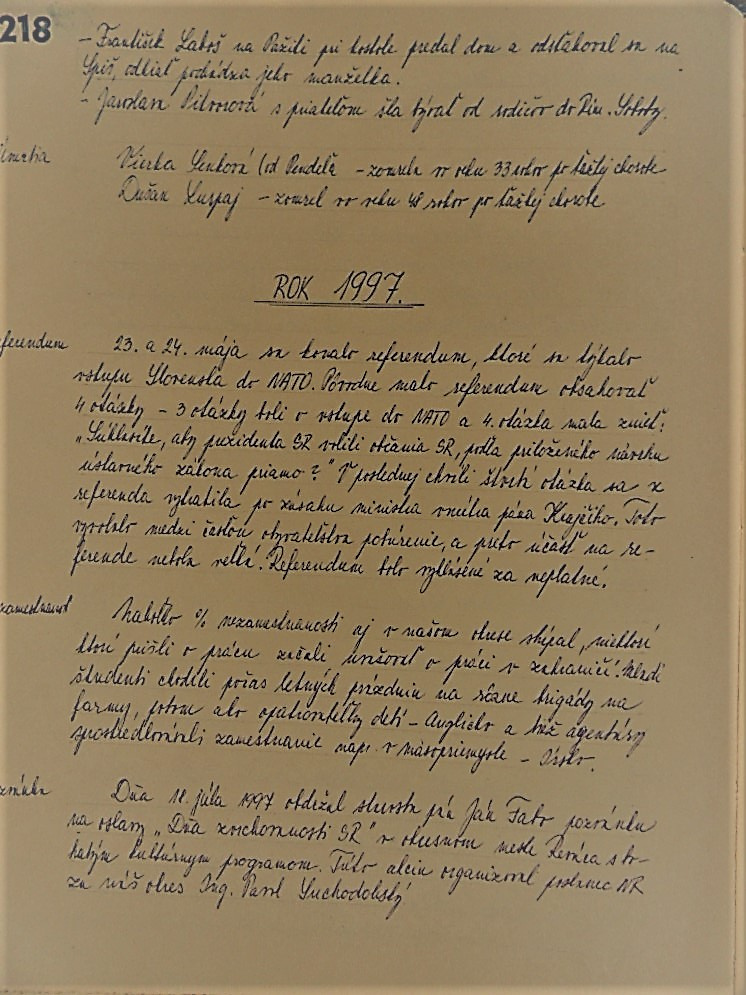 218
- František Laboš na Pažiti pri kostole predal dom a odsťahoval sa na
Spiš, odkiaľ pochádza jeho manželka.
- Jaroslava s priateľom šla bývať od rodičov do Rim. Soboty.
Úmrtia
Vierka (od Pendeľa - zomrela vo veku 33 rokov po ťažkej chorobe
Dušan - zomrel vo veku 48 rokov po ťažkej chorobe
ROK 1997.
eferendum
23. a 24. mája sa konalo referendum, ktoré sa týkalo
vstupu Slovenska do NATO. Pôvodne malo referendum obsahovať
4 otázky - 3 otázky boli o vstupe do NATO a 4. otázka mala znieť:
„Súhlasíte, aby prezidenta SR volili občania SR, podľa priloženého návrhu
ústavného zákona priamo?" V poslednej chvíli štvrtá otázka sa z
referenda vytratila po zásahu ministra vnútra pána Krajčiho. Toto
vyvolalo medzi časťou obyvateľstva pobúrenie, a preto účasť na re-
ferende nebola veľká. Referendum bolo vyhlásené za neplatné.
zamestnanosť
Nakoľko % nezamestnanosti aj v našom okrese stúpal, niektorí
ktorí prišli o prácu začali uvažovať o práci v zahraničí. Mladí
študenti chodili počas letných prázdnin na rôzne brigády na
farmy, potom ako opatrovateľky detí - Anglicko a tiež agentúry
sprostredkovávali zamestnanie napr. v mäsopriemysle - Írsko.
zvánka
Dňa 18. júla 1997 obdržal starosta pán Ján Fabo pozvánku
na oslavy „Dňa zvrchovanosti SR" v okresnom meste Revúca s bo-
hatým kultúrnym programom. Túto akciu organizoval poslanec NR
za náš okres Ing. Pavol Suchodolský